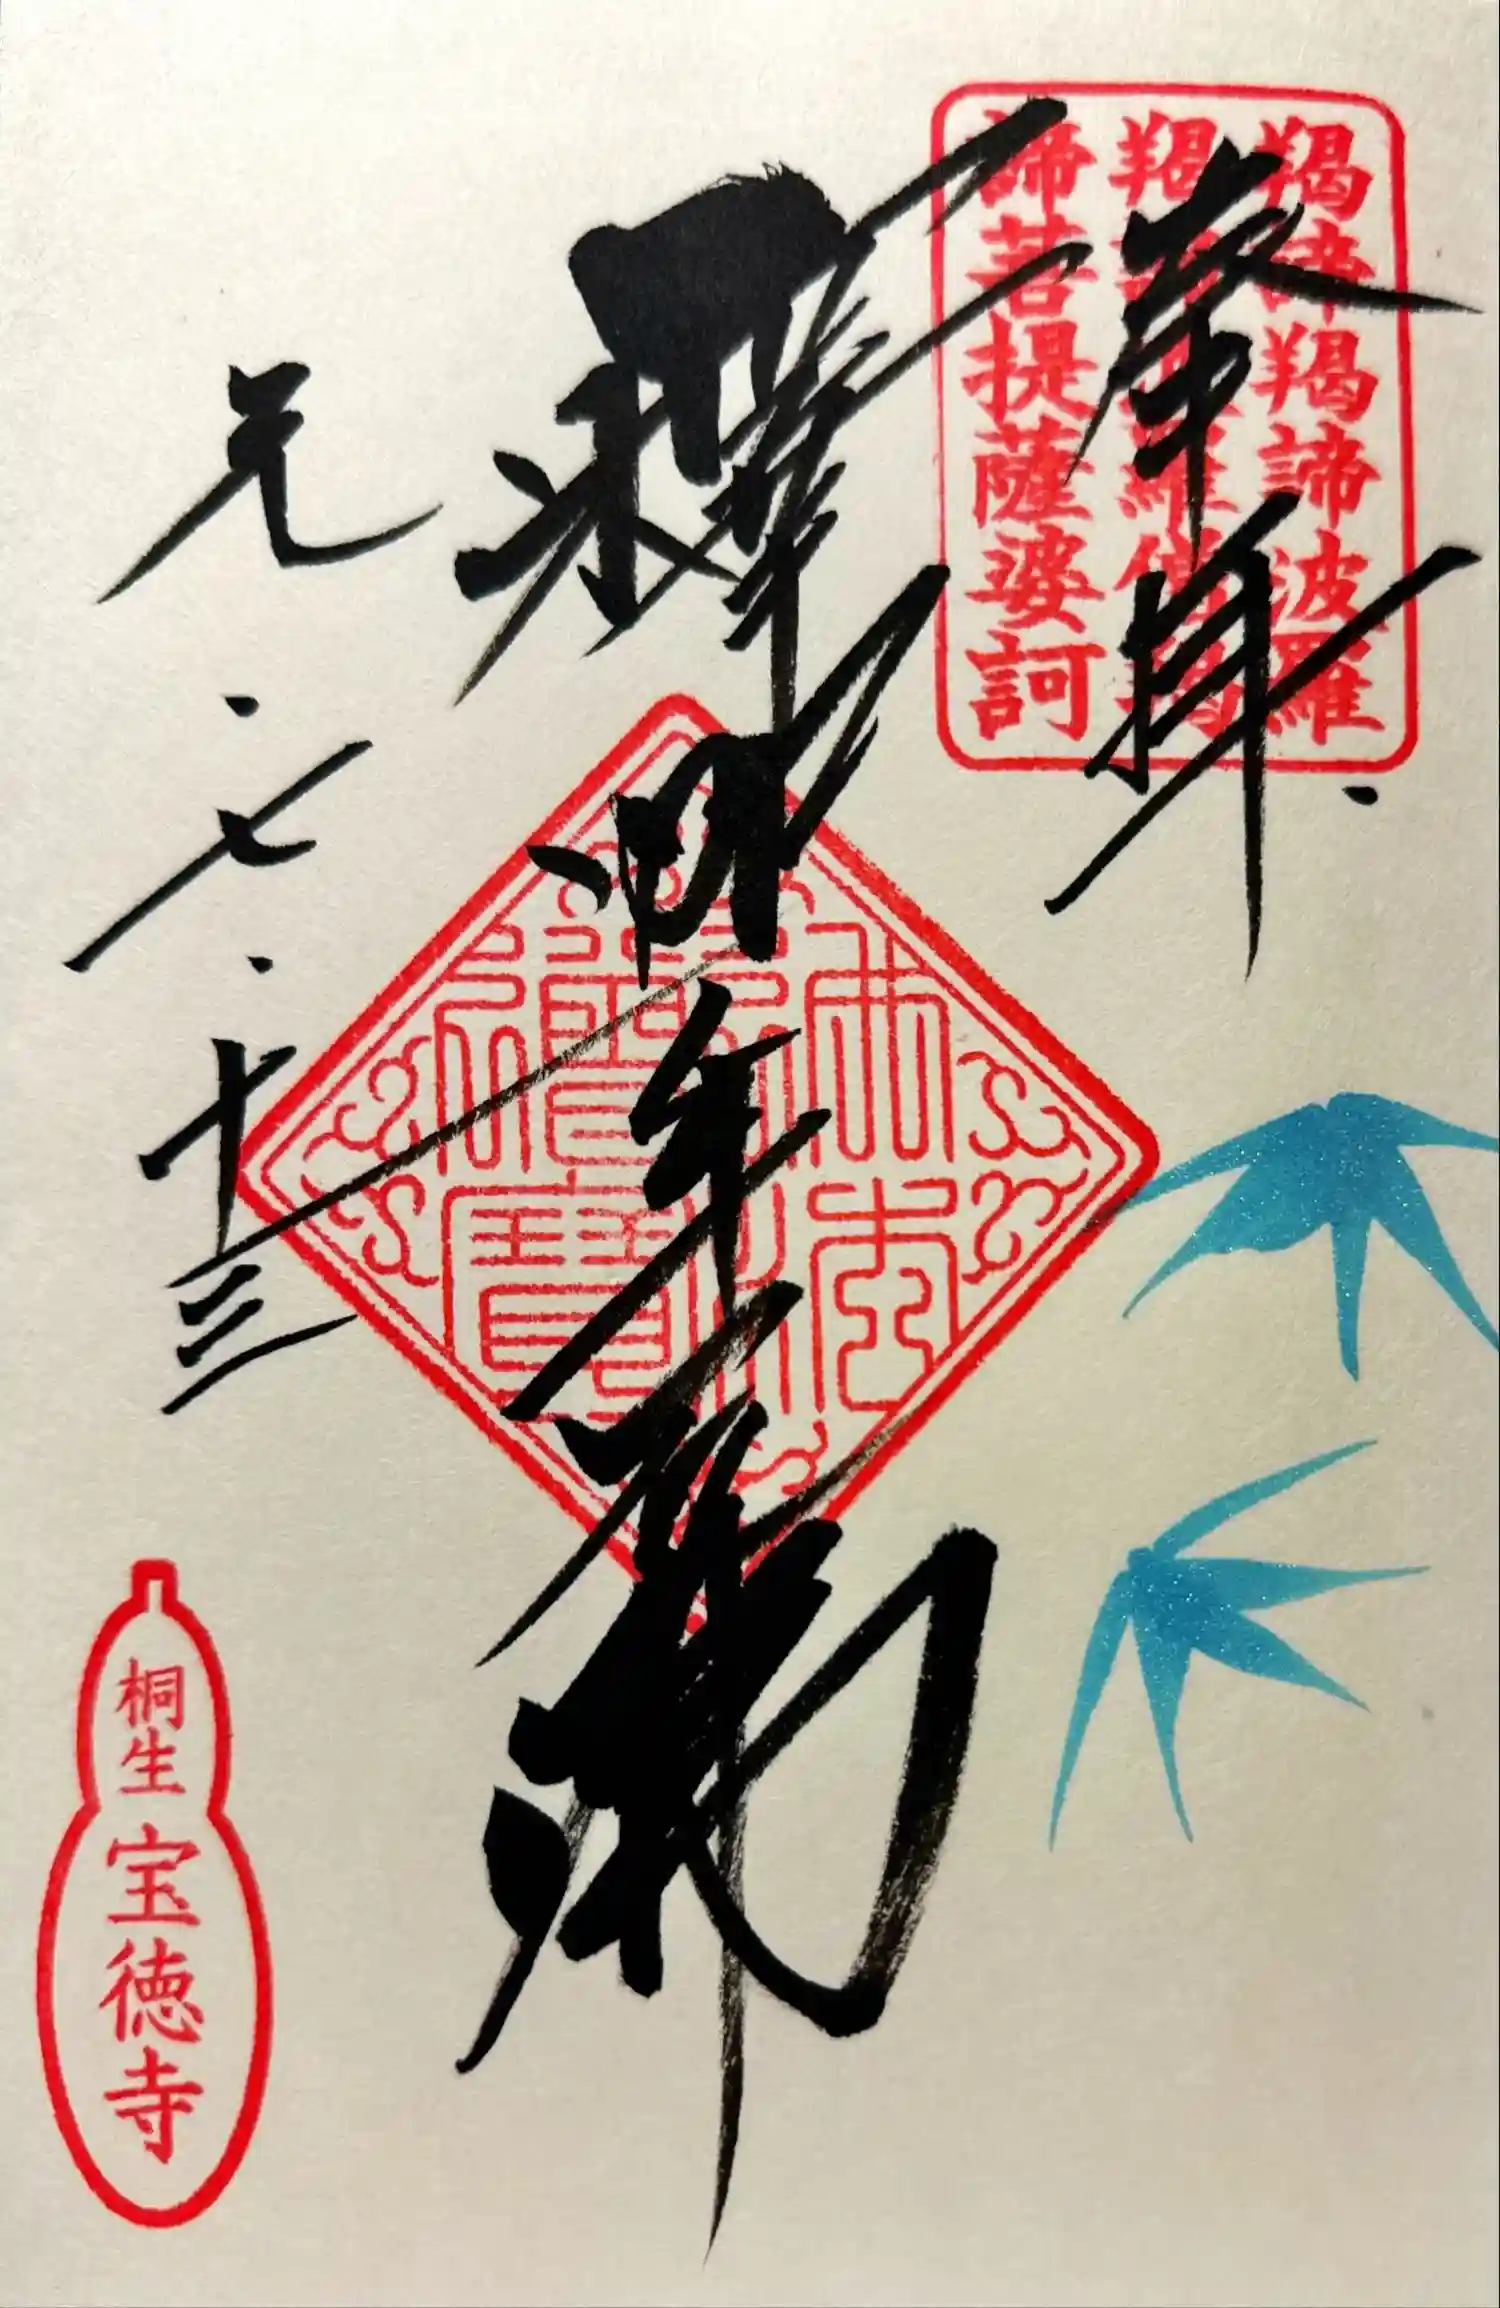 奉拝
羯諦羯諦波羅
羯諦波羅僧羯
諦菩提薩婆訶
釋迦牟尼佛
元・七・十三
桐生
宝徳寺